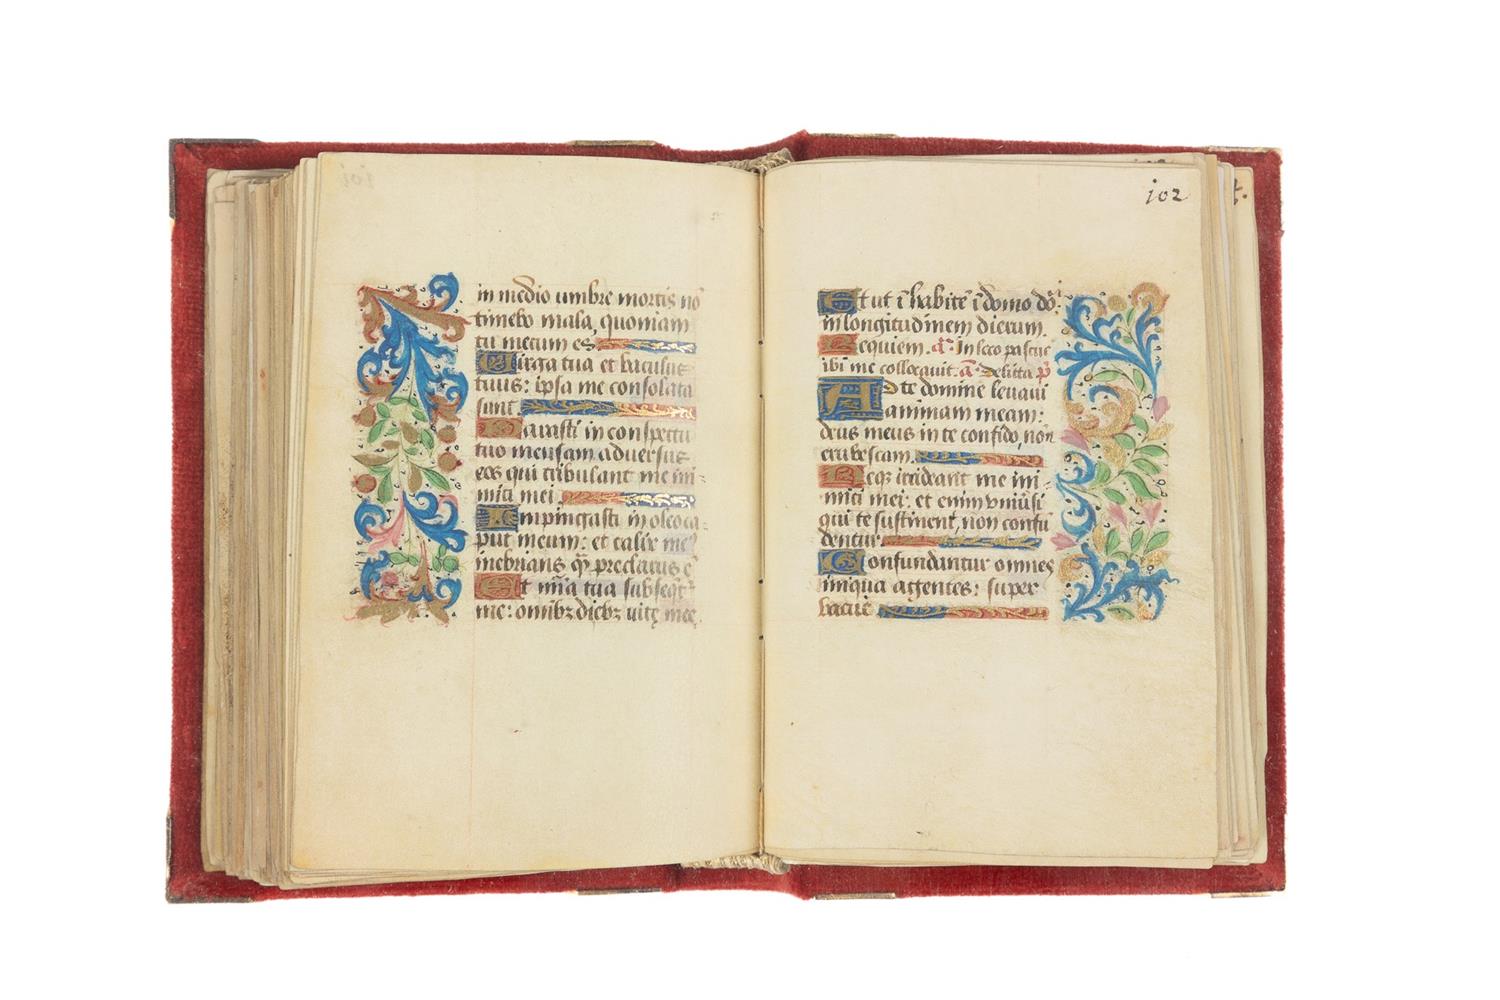 in medio umbre mortis nō
timebo mala, quoniam
tu mecum es
Virga tua et baculus
tuus: ipsa me consolata
sunt
Parasti in conspectu
tuo mensam adversus
eos qui tribulant me ini-
mici mei
Inpingasti in oleo ca-
put meum: et calix me⁹
inebrians q̄ preclarus ē
Et mīa tua subseqt̄
me: omībꝫ diebꝫ vitę mee
102
Et ut ī habitē ī domo dōi
in longitudinem dierum
Requiem. a᷑. In loco pascue
ibi me collocavit. a᷑. Delicta p̄
Ad te domine levavi
animam meam:
deus meus in te confido, non
erubescam
Neqꝫ irrideant me ini
mici mei: et enim vniūsi
qui te sustinent, non confu
dentur
Confundantur omnes
iniqua agentes: super
vacue